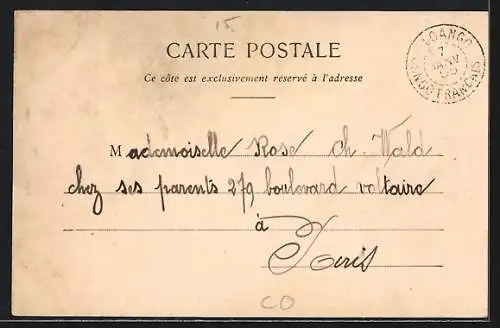 15
CARTE POSTALE
Ce côté est exclusivement réservé à l'adresse
LOANGO
7
JANV
CONGO FRANÇAIS
Mademoiselle Rose Ch. Wald
chez ses parents 279 boulevard voltaire
à
Paris
CO